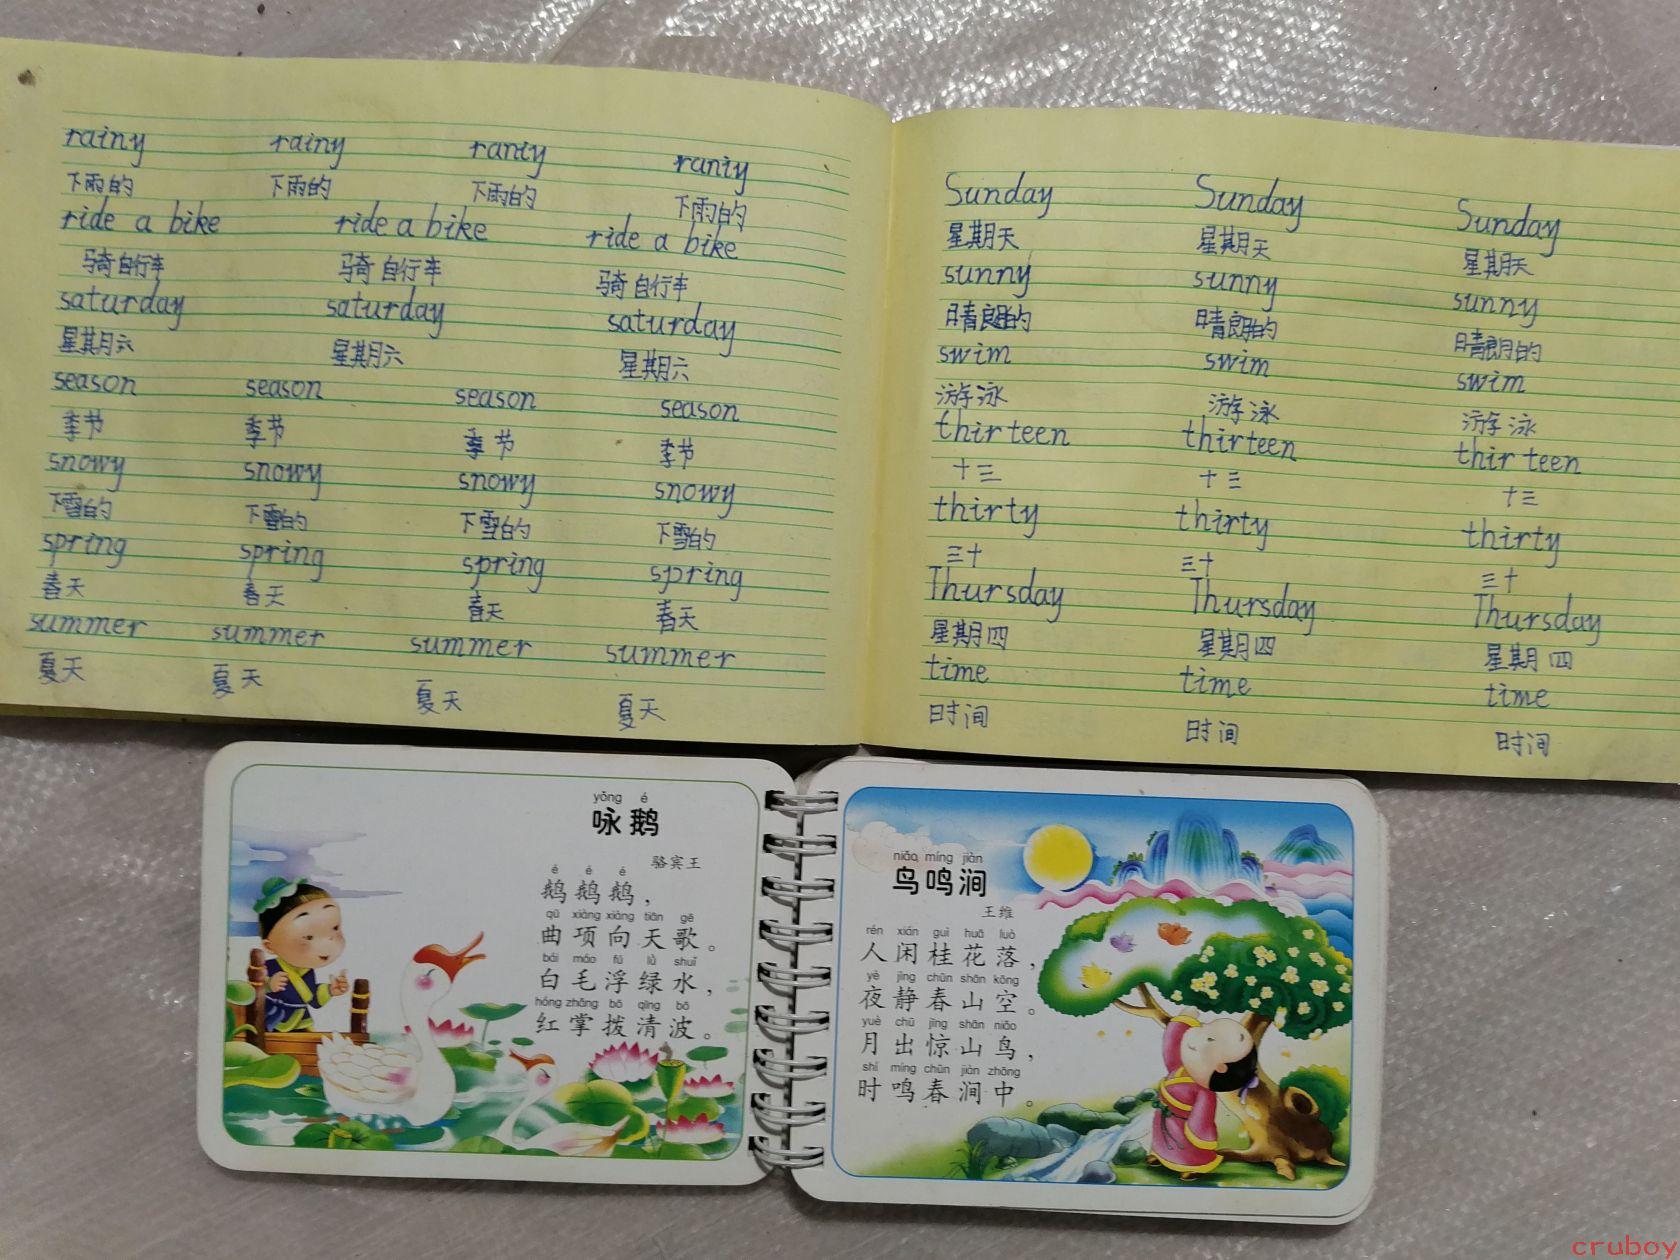 rainy rainy raniy raniy
下雨的 下雨的 下雨的 下雨的
ride a bike ride a bike ride a bike
骑自行车 骑自行车 骑自行车
saturday saturday saturday
星期六 星期六 星期六
season season season season
季节 季节 季节 季节
snowy snowy snowy snowy
下雪的 下雪的 下雪的 下雪的
spring spring spring spring
春天 春天 春天 春天
summer summer summer summer
夏天 夏天 夏天 夏天
Sunday Sunday Sunday
星期天 星期天 星期天
sunny sunny sunny
晴朗的 晴朗的 晴朗的
swim swim swim
游泳 游泳 游泳
thirteen thirteen thirteen
十三 十三 十三
thirty thirty thirty
三十 三十 三十
Thursday Thursday Thursday
星期四 星期四 星期四
time time time
时间 时间 时间
yǒng é
咏鹅
骆宾王
é é é
鹅鹅鹅，
qū xiàng xiàng tiān gē
曲项向天歌。
bái máo fú lǜ shuǐ
白毛浮绿水，
hóng zhǎng bō qīng bō
红掌拨清波。
niǎo míng jiàn
鸟鸣涧
王维
rén xián guì huā luò
人闲桂花落，
yè jìng chūn shān kōng
夜静春山空。
yuè chū jīng shān niǎo
月出惊山鸟，
shí míng chūn jiàn zhōng
时鸣春涧中。
cruboy